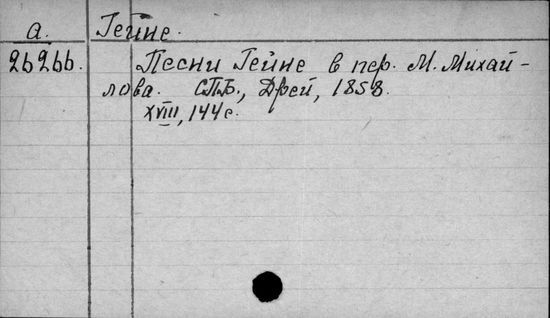 а. Гейне.
26266. Песни Гейне в пер. М. Михай-
лова. СПБ., Дрей, 1858.
XVIII, 144 с.